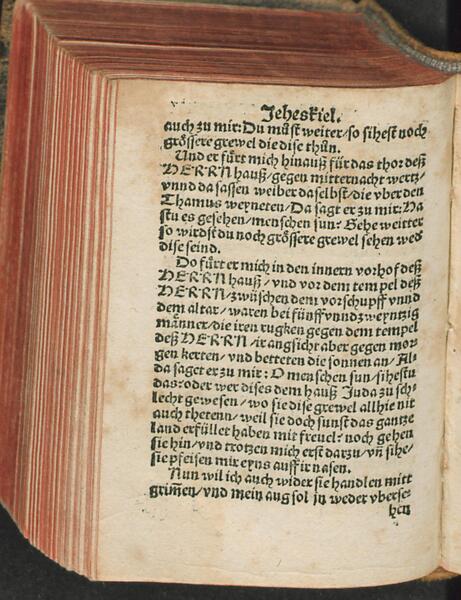 Jeheskiel.
auch zu mir: Du můst weiter/so sihest noch
grössere grewel die dise thůn.
Und er fürt mich hinauß für das thor deß
HERRN hauß/gegen mitternacht wertz/
vnnd da sassen weiber daselbst/die vber den
Thamus weyneten/Da sagt er zu mir: Ha
stu es gesehen/menschen sun? Gehe weitter
so wirdst du noch grössere grewel sehen wed
dise seind.
Do fürt er mich in den innern vorhof deß
HERRN hauß/vnd vor dem tempel deß
HERRN/zwüschen dem vorschupff vnnd
dem altar/waren bei fünff vnnd zweyntzig
männer/die iren rugken gegen dem tempel
deß HERRN/ir angsicht aber gegen mor-
gen kerten/vnd betteten die sonnen an/Al-
da saget er zu mir: O menschen sun/sihestu
das: oder wer dises dem hauß Juda zu sch-
lecht gewesen/wo sie dise grewel allhie nit
auch thetenn/weil sie doch sunst das gantze
land erfüllet haben mit freuel: noch gehen
sie hin/vnd trotzen mich erst darzu/vñ sihe/
sie pfeisen mir eyns auff ir nasen.
Nun wil ich auch wider sie handlen mitt
grim̃en/vnd mein aug sol jn weder vberse-
hen